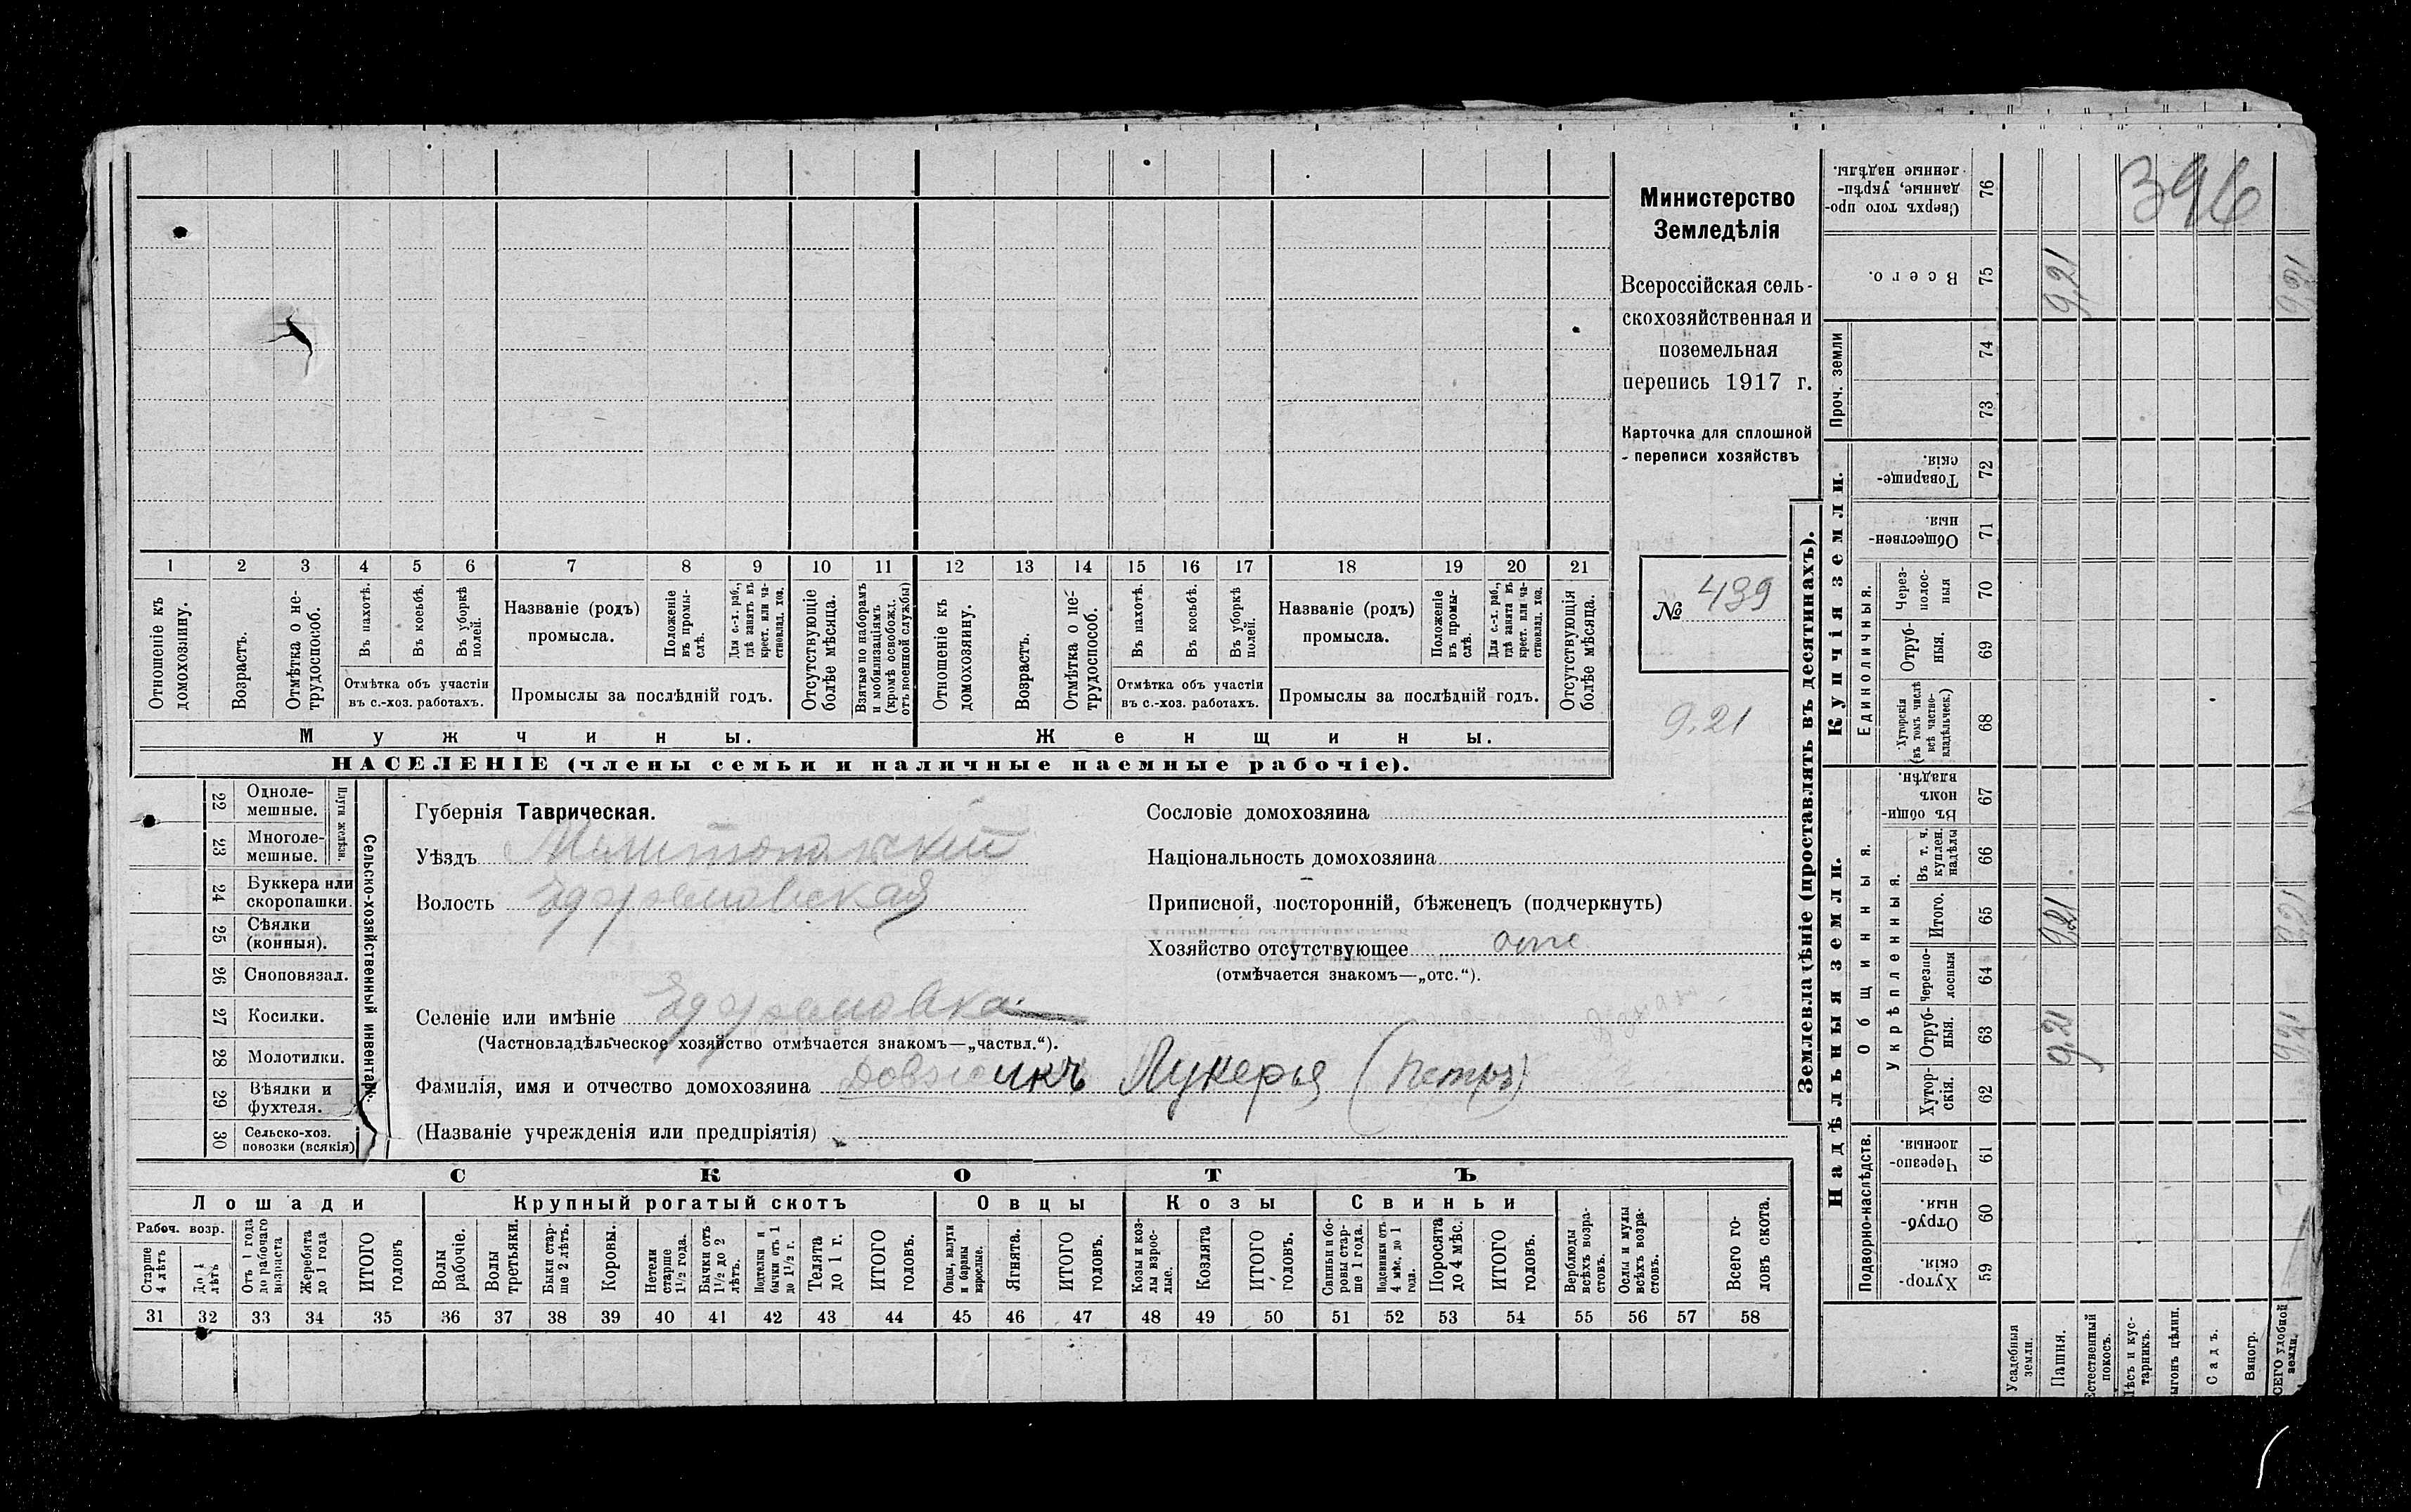 Министерство
Земледѣлія
Всероссійская сель-
скохозяйственная и
поземельная
перепись 1917 г.
Карточка для сплошной
переписи хозяйствъ
№ 439
9.21
396
1 2 3 4 5 6 7 8 9 10 11 12 13 14 15 16 17 18 19 20 21
Отношеніе къ домохозяину.
Возрастъ.
Отмѣтка о не-трудоспособ.
Въ пахотѣ.
Въ косьбѣ.
Въ уборкѣ полей.
Отмѣтка объ участіи
въ с.-хоз. работахъ.
Названіе (родъ)
промысла.
Положеніе въ промы-слѣ.
Для с.-х. раб., гдѣ занятъ въ крест. или ча-стновлад. хоз.
Промыслы за послѣдній годъ.
Отсутствующіе болѣе мѣсяца.
Взятые по наборамъ и мобилизаціямъ (кромѣ освобожд. отъ военной службы)
Отношеніе къ домохозяину.
Возрастъ.
Отмѣтка о не-трудоспособ.
Въ пахотѣ.
Въ косьбѣ.
Въ уборкѣ полей.
Отмѣтка объ участіи
въ с.-хоз. работахъ.
Названіе (родъ)
промысла.
Положеніе въ промы-слѣ.
Для с.-х. раб., гдѣ занята въ крест. или ча-стновлад. хоз.
Промыслы за послѣдній годъ.
Отсутствующія болѣе мѣсяца.
Мужчины.
Женщины.
НАСЕЛЕНІЕ (члены семьи и наличные наемные рабочіе).
22 Одноле-мешные.
23 Многоле-мешные.
Плуги желѣзн.
24 Буккера или скоропашки.
25 Сѣялки (конныя).
26 Сноповязал.
27 Косилки.
28 Молотилки.
29 Вѣялки и фухтеля.
30 Сельско-хоз. повозки (всякія)
Сельско-хозяйственный инвентарь.
Губернія Таврическая.
Уѣздъ Мелитопольскій
Волость Ефремовская
Селеніе или имѣніе Ефремовка
(Частновладѣльческое хозяйство отмѣчается знакомъ—„частвл.“).
Фамилія, имя и отчество домохозяина Лукерья (Петръ)
(Названіе учрежденія или предпріятія)
Сословіе домохозяина
Національность домохозяина
Приписной, посторонній, бѣженецъ (подчеркнуть)
Хозяйство отсутствующее отс
(отмѣчается знакомъ—„отс.“).
СКОТЪ
Лошади
Крупный рогатый скотъ
Овцы
Козы
Свиньи
Рабоч. возр.
Старше 4 лѣтъ
До 4 лѣтъ
Отъ 1 года до рабочаго возраста
Жеребята до 1 года
ИТОГО головъ
Волы рабочіе.
Волы третьяки.
Быки стар-ше 2 лѣтъ.
Коровы.
Нетели старше 1½ года.
Бычки отъ 1½ до 2 лѣтъ.
Подтелки и бычки отъ 1 до 1½ г.
Телята до 1 г.
ИТОГО головъ.
Овцы, валухи и бараны взрослые.
Ягнята.
ИТОГО головъ.
Козы и коз-лы взрос-лые.
Козлята
ИТОГО головъ.
Свиньи и бо-ровы стар-ше 1 года.
Подсвинки отъ 4 мѣс. до 1 года.
Поросята до 4 мѣс.
ИТОГО головъ.
Верблюды всѣхъ возра-стовъ.
Ослы и мулы всѣхъ возра-стовъ.
Всего го-ловъ скота.
31 32 33 34 35 36 37 38 39 40 41 42 43 44 45 46 47 48 49 50 51 52 53 54 55 56 57 58
Землевладѣніе (проставлять въ десятинахъ).
Надѣльныя земли.
Купчія земли.
Проч. земли
Подворно-наслѣдств.
Общинныя
Укрѣпленныя.
Единоличныя.
Сверхъ того про-данные, укрѣп-ленные надѣлы. 76
Всего. 75 9,21 9,21
74
73
Товарище-скія. 72
Обществен-ныя. 71
Через-полос-ныя 70
Отруб-ныя. 69
Хуторскія (въ томъ числѣ всѣ частно-владѣльческ.) 68
Въ общин-номъ владѣн. 67
Въ т. ч. куплен. надѣлы 66
Итого. 65 9,21 9,21
Черезпо-лосныя 64
Отруб-ныя. 63 9,21 9,21
Хутор-скія. 62
Черезпо-лосныя. 61
Отруб-ныя. 60
Хутор-скія. 59
Усадебныя земли.
Пашня.
Естественный покосъ.
Лѣсъ и кус-тарникъ.
ыгонъ цѣлин.
Садъ.
Виногр.
СЕГО удобной земли.